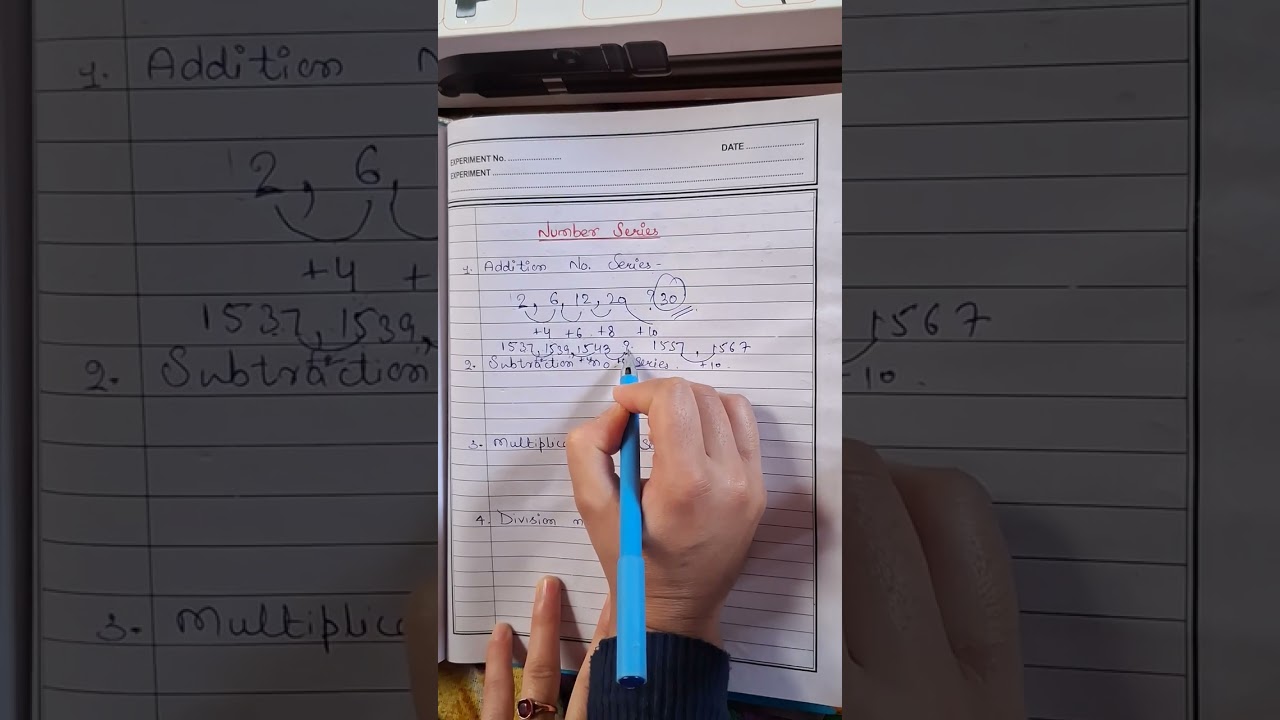 EXPERIMENT No. ....................
DATE ....................
EXPERIMENT ....................
Number Series
1. Addition No. Series -
2, 6, 12, 20 ? 30
+4 +6 +8 +10
1537, 1539, 1543 ? 1557, 1567
+10
2. Subtraction no Series.
3. Multiplic
4. Division